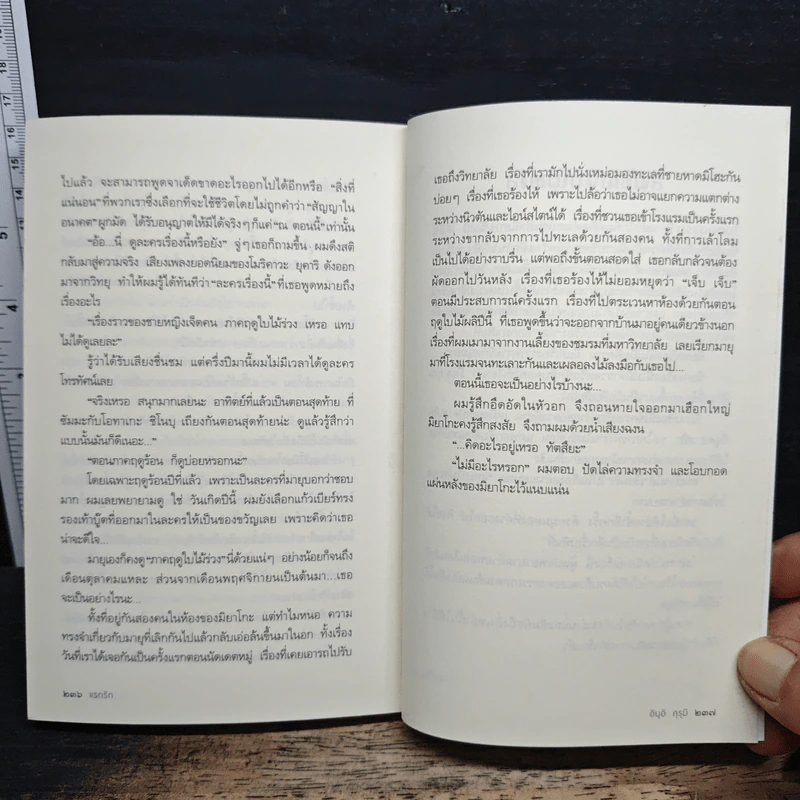 ไปแล้ว จะสามารถพูดจาเด็ดขาดอะไรออกไปได้อีกหรือ “สิ่งที่
แน่นอน”ที่พวกเราซึ่งเลือกที่จะใช้ชีวิตโดยไม่ถูกคำว่า“สัญญาใน
อนาคต”ผูกมัด ได้รับอนุญาตให้มีได้จริงๆก็แค่“ณ ตอนนี้”เท่านั้น
“อ้อ...นี่ ดูละครเรื่องนี้หรือยัง” จู่ๆเธอก็ถามขึ้น ผมดึงสติ
กลับมาสู่ความจริง เสียงเพลงยอดนิยมของโมริคาวะ ยุคาริ ดังออก
มาจากวิทยุ ทำให้ผมรู้ได้ทันทีว่า“ละครเรื่องนี้”ที่เธอพูดหมายถึง
เรื่องอะไร
“เรื่องราวของชายหญิงเจ็ดคน ภาคฤดูใบไม้ร่วง เหรอ แทบ
ไม่ได้ดูเลยละ”
รู้ว่าได้รับเสียงชื่นชม แต่ครึ่งปีมานี้ผมไม่มีเวลาได้ดูละคร
โทรทัศน์เลย
“จริงเหรอ สนุกมากเลยนะ อาทิตย์ที่แล้วเป็นตอนสุดท้าย ที่
ซัมมะกับโอทาเกะ ชิโนบุ เถียงกันตอนสุดท้ายน่ะ ดูแล้วรู้สึกว่า
แบบนั้นมันก็ดีเนอะ...”
“ตอนภาคฤดูร้อน ก็ดูบ่อยหรอกนะ”
โดยเฉพาะฤดูร้อนปีที่แล้ว เพราะเป็นละครที่มายุบอกว่าชอบ
มาก ผมเลยพยายามดู ใช่ วันเกิดปีนี้ ผมยังเลือกแก้วเบียร์ทรง
รองเท้าบู๊ตที่ออกมาในละครให้เป็นของขวัญเลย เพราะคิดว่าเธอ
น่าจะดีใจ...
มายุเองก็คงดู“ภาคฤดูใบไม้ร่วง”นี่ด้วยแน่ๆ อย่างน้อยก็จนถึง
เดือนตุลาคมแหละ ส่วนจากเดือนพฤศจิกายนเป็นต้นมา...เธอ
จะเป็นอย่างไรนะ...
ทั้งที่อยู่กันสองคนในห้องของมิยาโกะ แต่ทำไมหนอ ความ
ทรงจำเกี่ยวกับมายุที่เลิกกันไปแล้วกลับเอ่อล้นขึ้นมาในอก ทั้งเรื่อง
วันที่เราได้เจอกันเป็นครั้งแรกตอนนัดเดตหมู่ เรื่องที่เคยเอารถไปรับ
๒๓๖ แรกรัก
เธอถึงวิทยาลัย เรื่องที่เรามักไปนั่งเหม่อมองทะเลที่ชายหาดมิโฮะกัน
บ่อยๆ เรื่องที่เธอร้องไห้ เพราะไปล้อว่าเธอไม่อาจแยกความแตกต่าง
ระหว่างนิวตันและไอน์สไตน์ได้ เรื่องที่ชวนเธอเข้าโรงแรมเป็นครั้งแรก
ระหว่างขากลับจากการไปทะเลด้วยกันสองคน ทั้งที่การเล้าโลม
เป็นไปได้อย่างราบรื่น แต่พอถึงขั้นตอนสอดใส่ เธอกลับกลัวจนต้อง
ผัดออกไปวันหลัง เรื่องที่เธอร้องไห้ไม่ยอมหยุดว่า “เจ็บ เจ็บ”
ตอนมีประสบการณ์ครั้งแรก เรื่องที่ไปตระเวนหาห้องด้วยกันตอน
ฤดูใบไม้ผลิปีนี้ ที่เธอพูดขึ้นว่าจะออกจากบ้านมาอยู่คนเดียวข้างนอก
เรื่องที่ผมเมามาจากงานเลี้ยงของชมรมที่มหาวิทยาลัย เลยเรียกมายุ
มาที่โรงแรมจนทะเลาะกันและเผลอลงไม้ลงมือกับเธอไป...
ตอนนี้เธอจะเป็นอย่างไรบ้างนะ...
ผมรู้สึกอึดอัดในหัวอก จึงถอนหายใจออกมาเฮือกใหญ่
มิยาโกะคงรู้สึกสงสัย จึงถามผมด้วยน้ำเสียงฉงน
“...คิดอะไรอยู่เหรอ ทัตสึยะ”
“ไม่มีอะไรหรอก” ผมตอบ ปัดไล่ความทรงจำ และโอบกอด
แผ่นหลังของมิยาโกะไว้แนบแน่น
อินุอิ คุรุมิ ๒๓๗